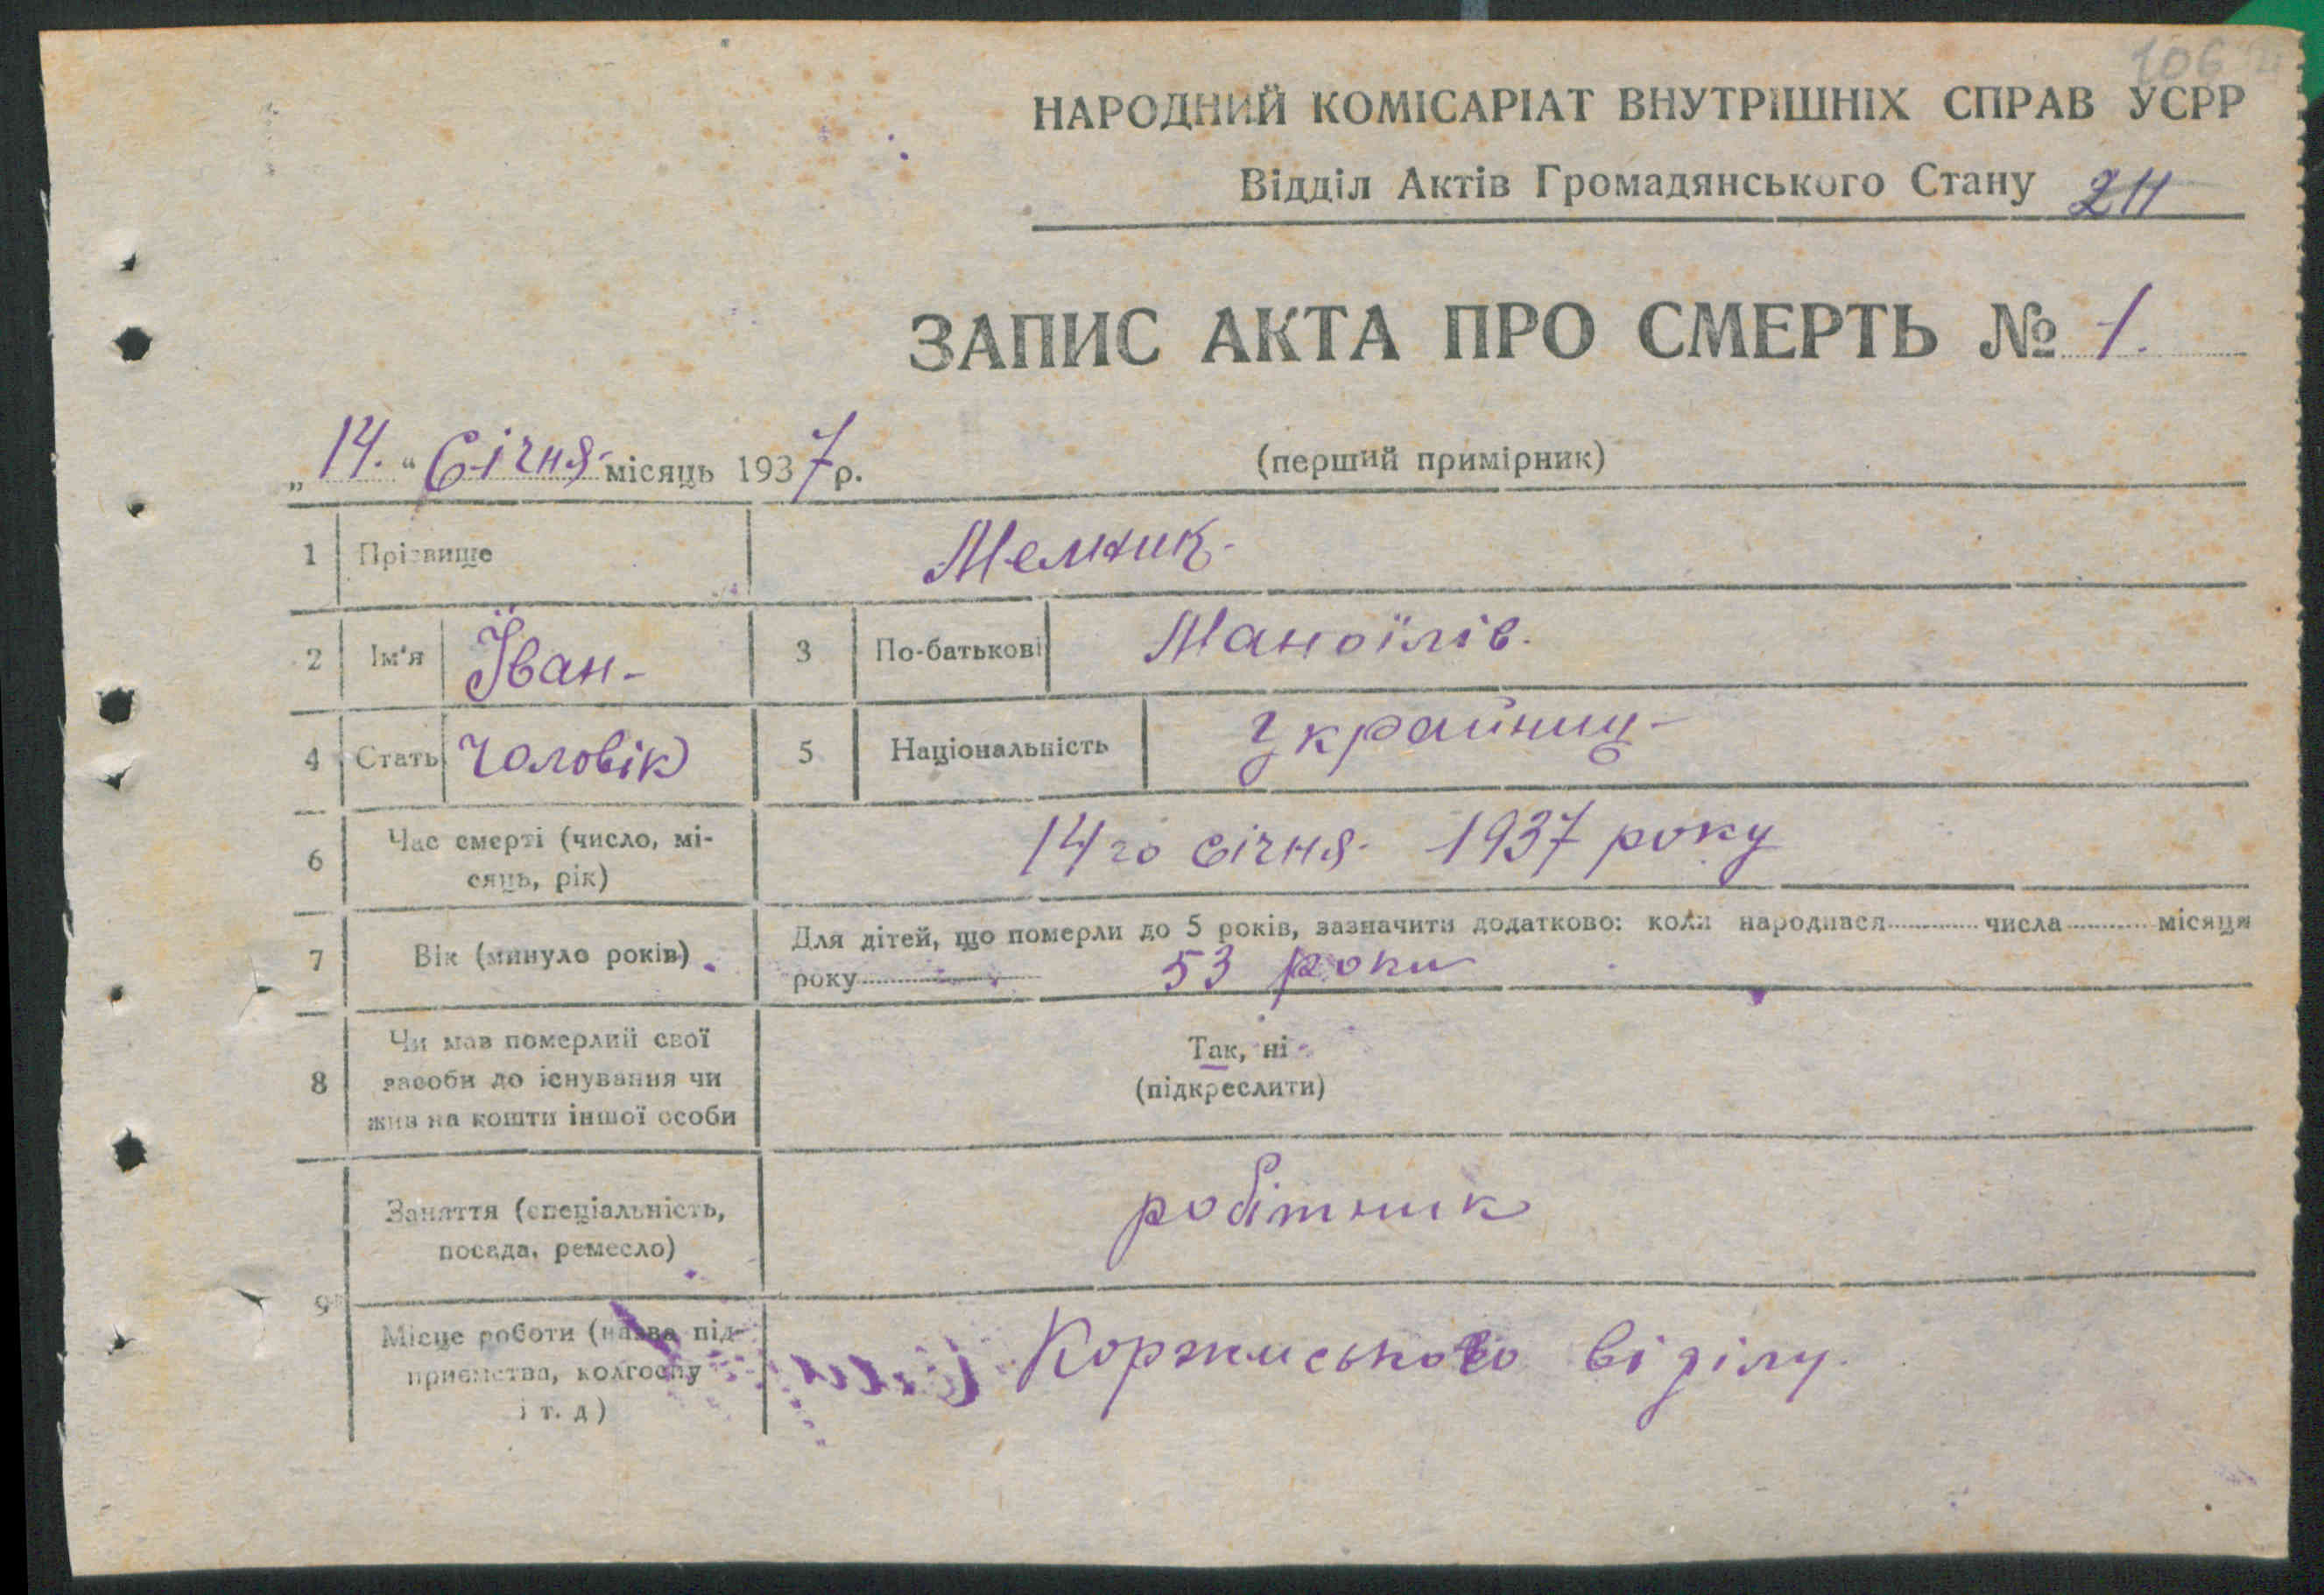 106
НАРОДНИЙ КОМІСАРІАТ ВНУТРІШНІХ СПРАВ УСРР
Відділ Актів Громадянського Стану
ЗАПИС АКТА ПРО СМЕРТЬ № 1.
„14.“ Січня місяць 1937 р.
(перший примірник)
1 Прізвище Мелник
2 Ім'я Іван 3 По-батькові Маноїлів.
4 Стать чоловік 5 Національність Українец
6 Час смерті (число, мі-
сяць, рік)
14го січня 1937 року
7 Вік (минуло років)
Для дітей, що померли до 5 років, зазначити додатково: коли народився числа місяця
року 53 роки
8 Чи мав померлий свої
засоби до існування чи
жив на кошти іншої особи
Так, ні
(підкреслити)
9 Заняття (спеціальність,
посада, ремесло)
робітник
Місце роботи (назва під-
приємства, колгоспу
і т. д)
віділу